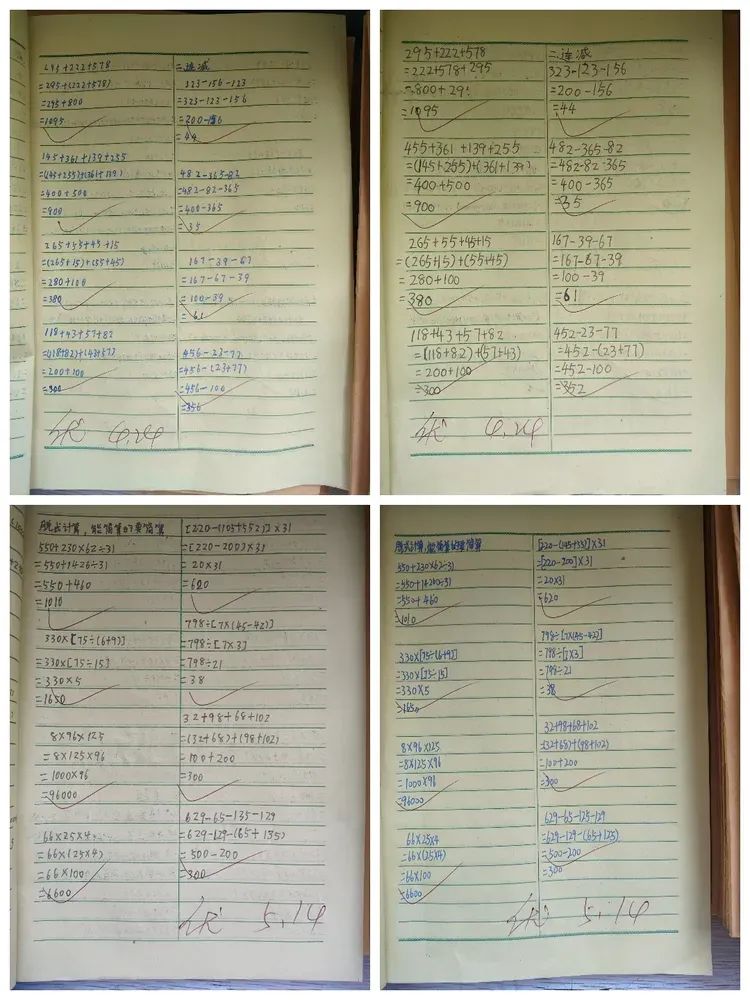 295+222+578
=295+(222+578)
=295+800
=1095
145+361+139+255
=(145+255)+(361+139)
=400+500
=900
265+55+45+15
=(265+15)+(55+45)
=280+100
=380
118+43+57+82
=(118+82)+(43+57)
=200+100
=300
二连减
323-156-123
=323-123-156
=200-156
=44
482-365-82
=482-82-365
=400-365
=35
167-39-67
=167-67-39
=100-39
=61
456-23-77
=456-(23+77)
=456-100
=356
优 4.24
295+222+578
=222+578+295
=800+295
=1095
455+361+139+255
=(145+255)+(361+139)
=400+500
=900
265+55+45+15
=(265+15)+(55+45)
=280+100
=380
118+43+57+82
=(118+82)+(57+43)
=200+100
=300
二.连减
323-123-156
=200-156
=44
482-365-82
=482-82-365
=400-365
=35
167-39-67
=167-67-39
=100-39
=61
452-23-77
=452-(23+77)
=452-100
=352
优 4.24
脱式计算,能简算的要简算
550+230×62÷31
=550+460
=1010
330×[75÷(6+9)]
=330×[75÷15]
=330×5
=1650
8×96×125
=8×125×96
=1000×96
=96000
66×25×4
=66×(25×4)
=66×100
=6600
=[220-200]×31
=20×31
=620
798÷[7×(45-42)]
=798÷[7×3]
=798÷21
=38
32+98+68+102
=(32+68)+(98+102)
=100+200
=300
629-65-135-129
=629-129-(65+135)
=500-200
=300
优 5.14
脱式计算,能简算的要简算
550+230×62÷31
=550+460
=1010
330×[75÷(6+9)]
=330×[75÷15]
=330×5
=1650
8×96×125
=8×125×96
=1000×96
=96000
66×25×4
=66×(25×4)
=66×100
=6600
=[220-200]×31
=20×31
=620
798÷[7×(45-42)]
=798÷[7×3]
=798÷21
=38
32+98+68+102
=(32+68)+(98+102)
=100+200
=300
629-65-125-129
=629-129-(65+125)
=500-200
=300
优 5.14